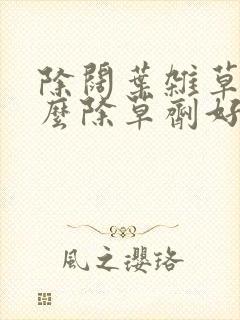 除闊葉雑草
麼除草劑好
風之瓔珞